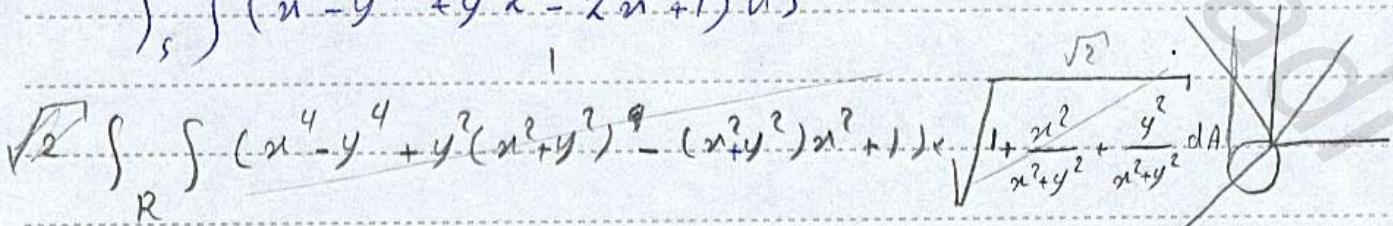 ∫∫_S (x⁴ - y⁴ + y²z² - z²x² + 1) dS
1
√2 ∫∫_R (x⁴ - y⁴ + y²(x²+y²) - (x²+y²)x² + 1) × √(1 + x²/(x²+y²) + y²/(x²+y²)) dA
√2